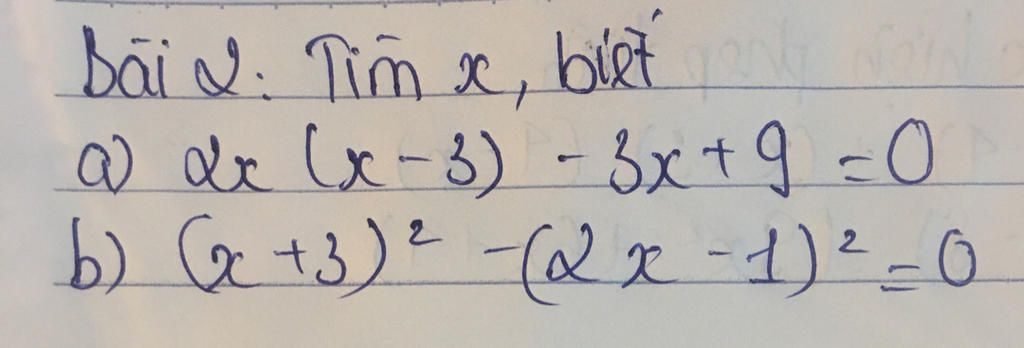 Bài 2: Tìm x, biết
a) 2x (x - 3) - 3x + 9 = 0
b) (x + 3)² - (2x - 1)² = 0